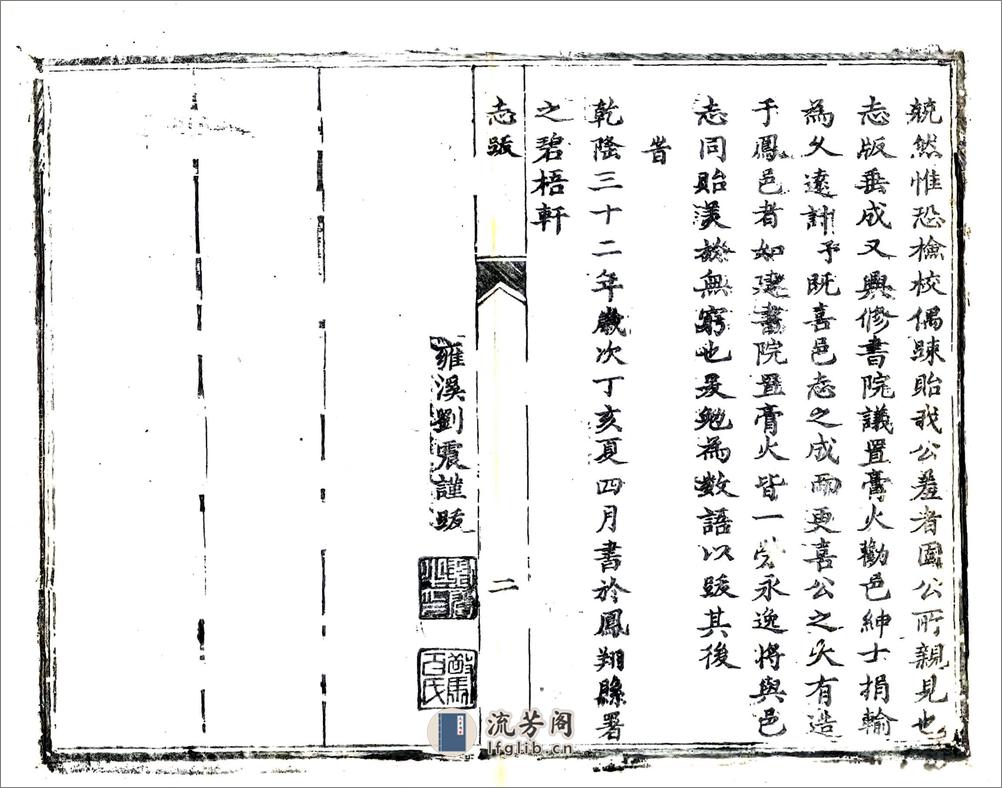 兢然惟恐檢校偶踈貽我公羞者固公所親見也
志版垂成又興修書院議置膏火勸邑紳士捐輸
為久遠計予既喜邑志之成而更喜公之大有造
于鳳邑者如建書院置膏火皆一勞永逸將與邑
志同貽美於無窮也爰勉為數語以跋其後
旹
乾隆三十二年歲次丁亥夏四月書於鳳翔縣署
之碧梧軒
志跋
二
雍溪劉震謹跋
流芳阁
lfglib.cn